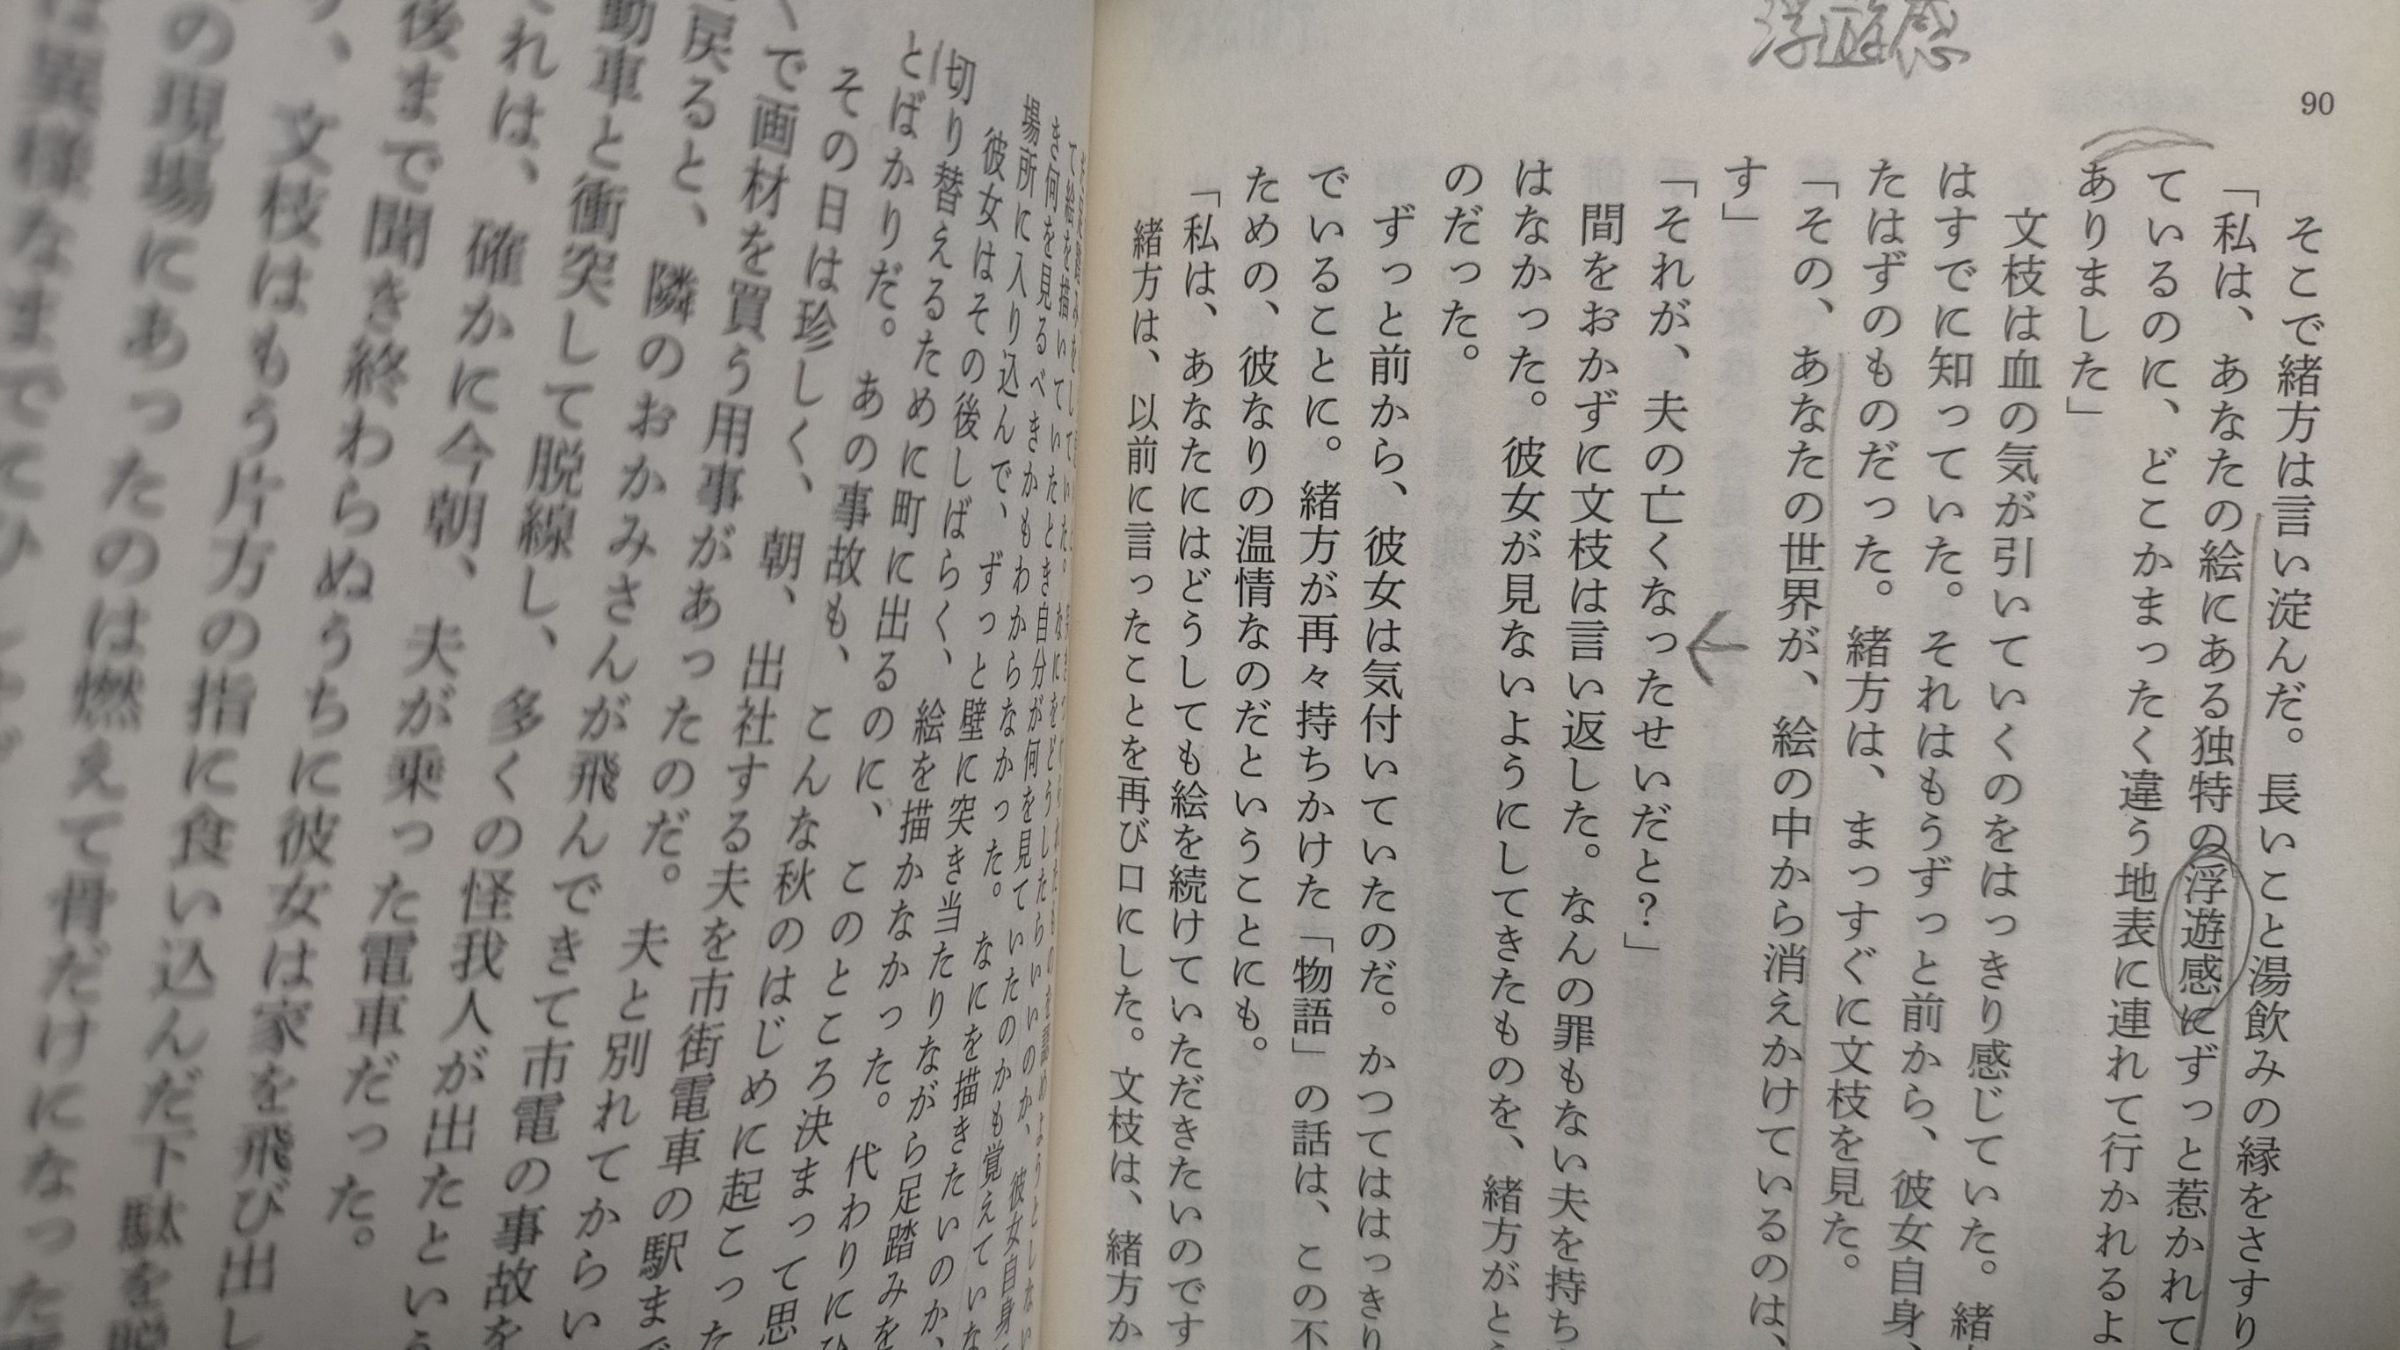 浮遊感
90
そこで緒方は言い淀んだ。長いこと湯飲みの縁をさすり
「私は、あなたの絵にある独特の浮遊感にずっと惹かれて
ているのに、どこかまったく違う地表に連れて行かれるよ
ありました」
文枝は血の気が引いていくのをはっきり感じていた。緒
はすでに知っていた。それはもうずっと前から、彼女自身、
たはずのものだった。緒方は、まっすぐに文枝を見た。
「その、あなたの世界が、絵の中から消えかけているのは、
す」
「それが、夫の亡くなったせいだと?」
間をおかずに文枝は言い返した。なんの罪もない夫を持ち
はなかった。彼女が見ないようにしてきたものを、緒方がとう
のだった。
ずっと前から、彼女は気付いていたのだ。かつてははっきり
でいることに。緒方が再々持ちかけた「物語」の話は、この不
ための、彼なりの温情なのだということにも。
「私は、あなたにはどうしても絵を続けていただきたいのです
緒方は、以前に言ったことを再び口にした。文枝は、緒方か
て絵を描いていたとき自分が何を見ていたのか、彼女自身
き何を見るべきかもわからなかった。なにを描きたいのか、
場所に入り込んで、ずっと壁に突き当たりながら足踏みを
彼女はその後しばらく、絵を描かなかった。代わりにひ
切り替えるために町に出るのに、このところ決まって思
とばかりだ。あの事故も、こんな秋のはじめに起こった
その日は珍しく、朝、出社する夫を市街電車の駅まで
くで画材を買う用事があったのだ。夫と別れてからい
戻ると、隣のおかみさんが飛んできて市電の事故を
動車と衝突して脱線し、多くの怪我人が出たという
れは、確かに今朝、夫が乗った電車だった。
後まで聞き終わらぬうちに彼女は家を飛び出し
、文枝はもう片方の指に食い込んだ下駄を脱
の現場にあったのは燃えて骨だけになった
は異様なまでにひ